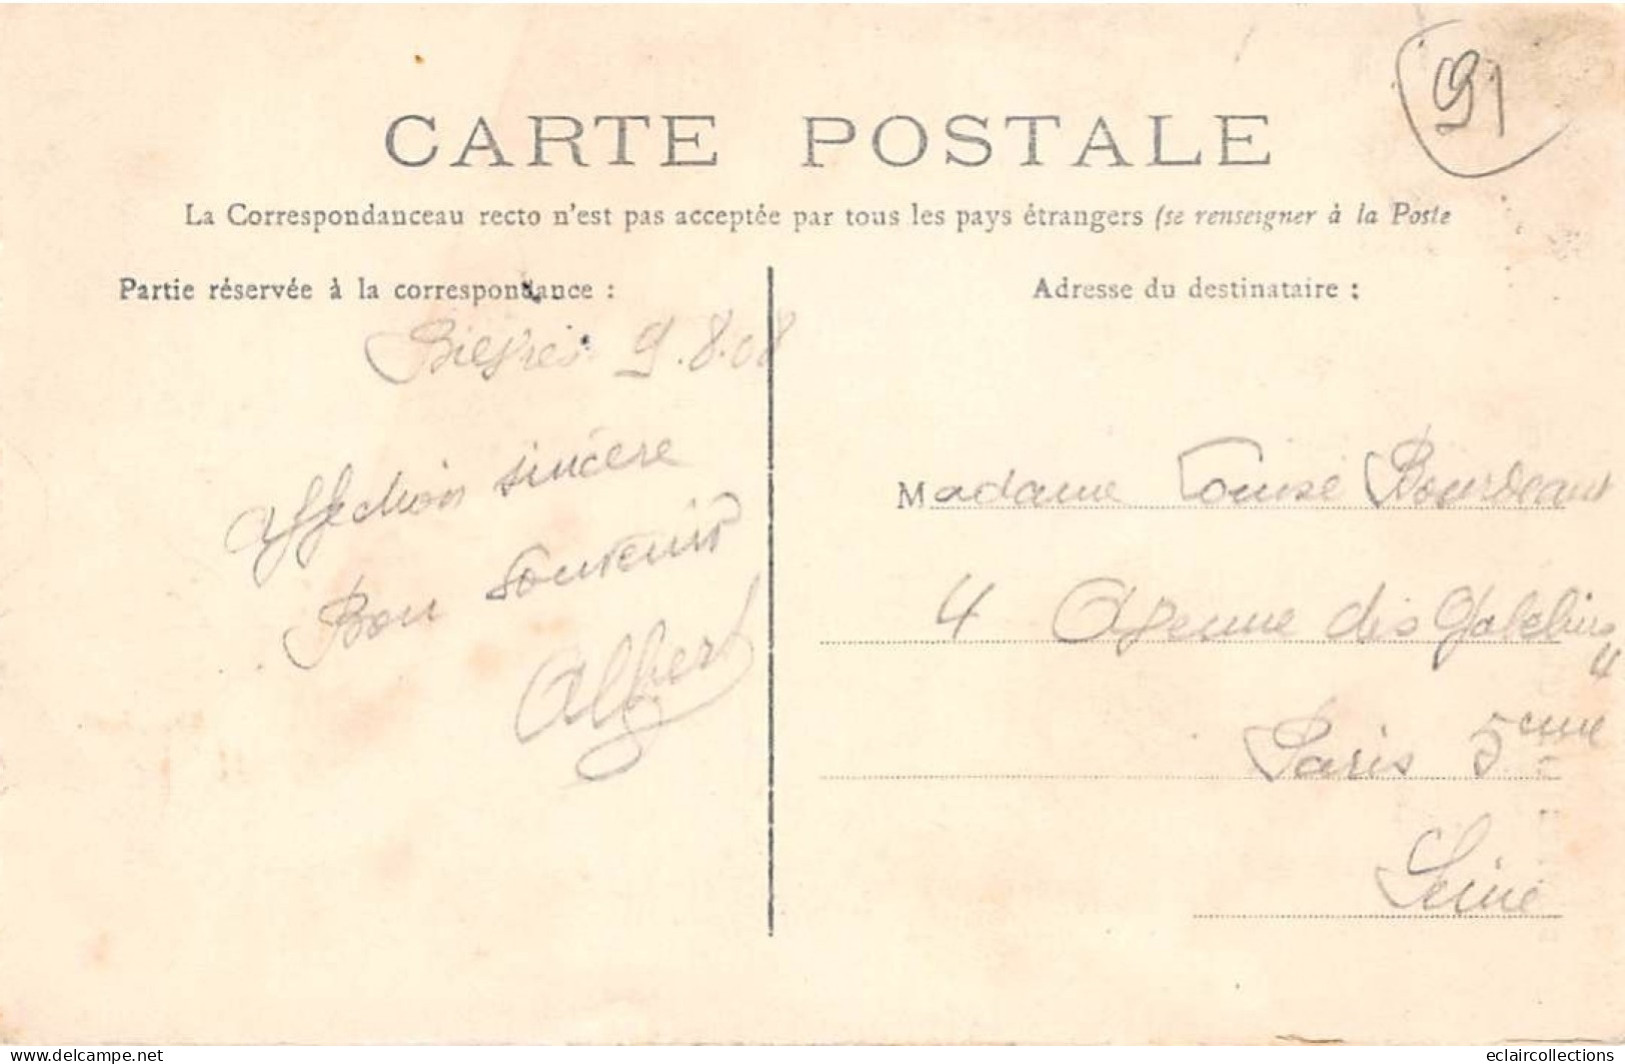 91
CARTE POSTALE
La Correspondanceau recto n'est pas acceptée par tous les pays étrangers (se renseigner à la Poste
Partie réservée à la correspondance :
Bièvres 9.8.08
Affection sincère
Bon souvenir
Albert
Adresse du destinataire :
Madame Louise Bourdeaux
4 Avenue des Gobelins
4
Paris 5eme
Seine
www.delcampe.net
eclaircollections